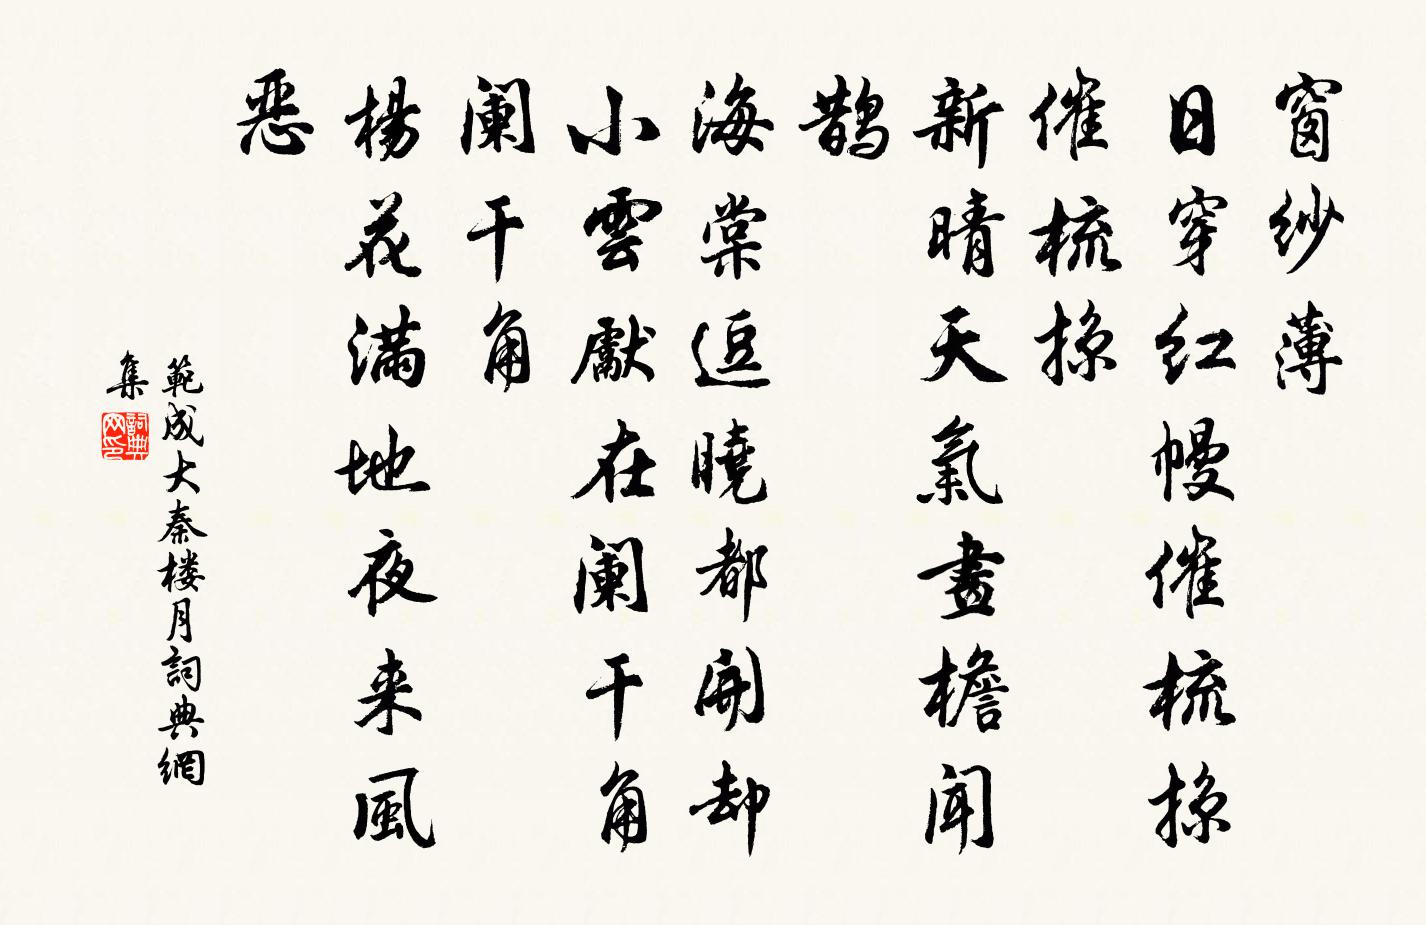 窗纱薄
日穿红幔催梳掠
催梳掠
新晴天氣畫檐闻
鹊
海棠逗曉都開却
小雲獻在阑干角
阑干角
楊花满地夜来風
恶
範成大秦楼月詞典網
集
詞典网印